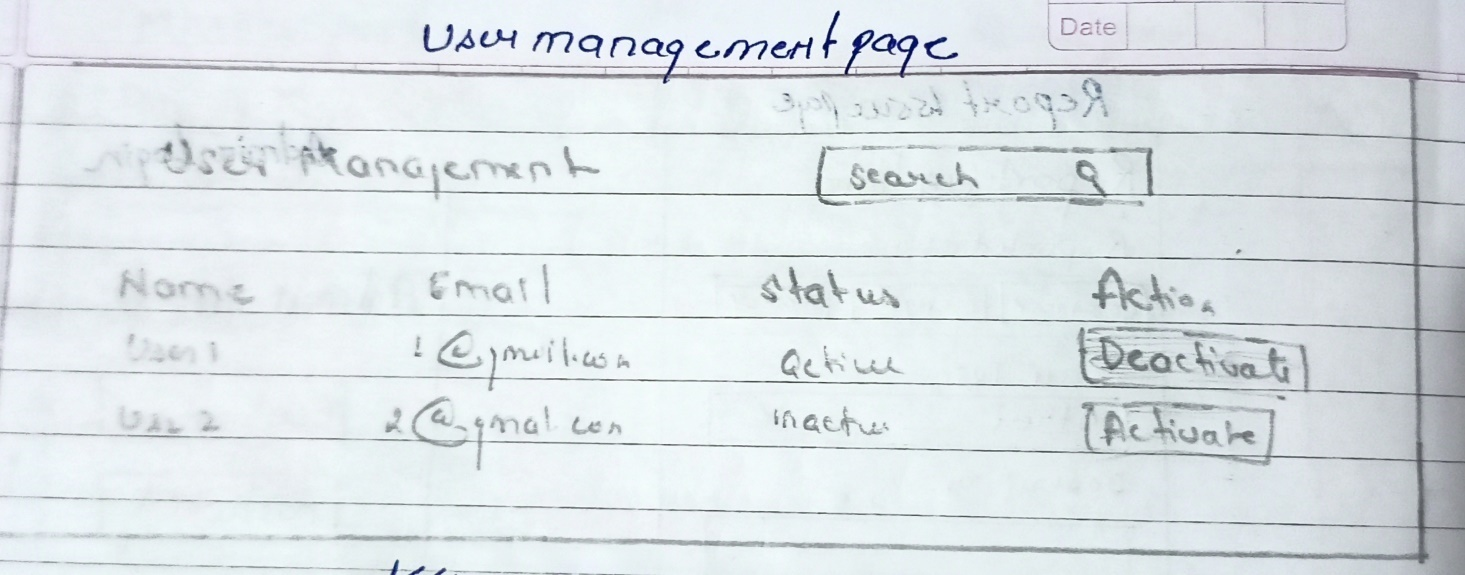 Date
User management page
Report Issue Page
User Management
search
Name Email Status Action
User 1 1@gmail.com Active Deactivate
User 2 2@gmal.com inactive Activate